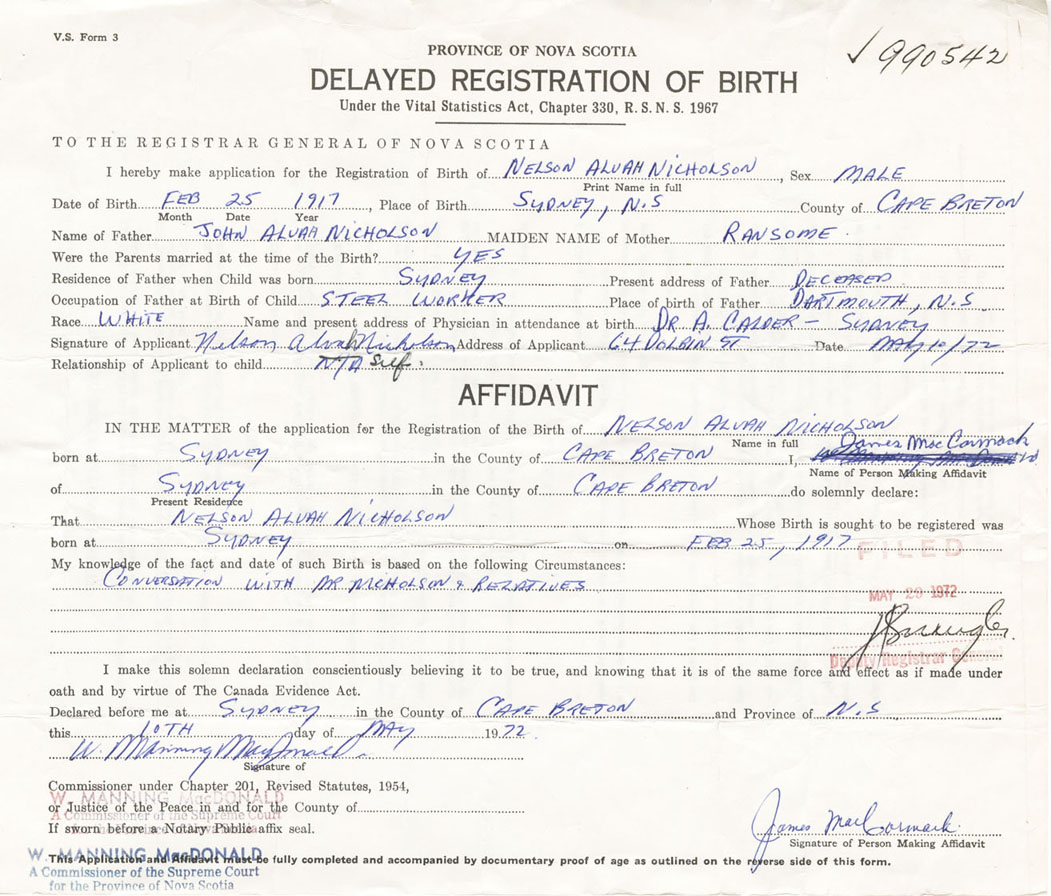 V.S. Form 3
PROVINCE OF NOVA SCOTIA
✓ 990542
DELAYED REGISTRATION OF BIRTH
Under the Vital Statistics Act, Chapter 330, R.S.N.S. 1967
TO THE REGISTRAR GENERAL OF NOVA SCOTIA
I hereby make application for the Registration of Birth of NELSON ALVAH NICHOLSON, Sex MALE
Print Name in full
Date of Birth FEB 25 1917, Place of Birth SYDNEY, N.S County of CAPE BRETON
Month Date Year
Name of Father JOHN ALVAH NICHOLSON MAIDEN NAME of Mother RANSOME.
Were the Parents married at the time of the Birth? YES
Residence of Father when Child was born SYDNEY Present address of Father DECEASED
Occupation of Father at Birth of Child STEEL WORKER Place of birth of Father DARTMOUTH, N.S
Race WHITE Name and present address of Physician in attendance at birth DR A. CALDER - SYDNEY
Signature of Applicant Nelson Alvah Nicholson Address of Applicant 64 DOLBIN ST Date MAY 10/72
Relationship of Applicant to child N/A Self
AFFIDAVIT
IN THE MATTER of the application for the Registration of the Birth of NELSON ALVAH NICHOLSON
Name in full James MacCormack
born at SYDNEY in the County of CAPE BRETON I,
Name of Person Making Affidavit
of SYDNEY in the County of CAPE BRETON do solemnly declare:
Present Residence
That NELSON ALVAH NICHOLSON Whose Birth is sought to be registered was
born at SYDNEY on FEB 25, 1917
FILED
My knowledge of the fact and date of such Birth is based on the following Circumstances:
CONVERSATION WITH MR NICHOLSON & RELATIVES
MAY 29 1972
Deputy Registrar General
I make this solemn declaration conscientiously believing it to be true, and knowing that it is of the same force and effect as if made under
oath and by virtue of The Canada Evidence Act.
Declared before me at SYDNEY in the County of CAPE BRETON and Province of N.S
this 10TH day of MAY 1972
W. Manning MacDonald
Signature of
Commissioner under Chapter 201, Revised Statutes, 1954,
W. MANNING MacDONALD
or Justice of the Peace in and for the County of
A Commissioner of the Supreme Court
If sworn before a Notary Public affix seal.
for the Province of Nova Scotia
James MacCormack
Signature of Person Making Affidavit
W. MANNING MacDONALD
This Application and Affidavit must be fully completed and accompanied by documentary proof of age as outlined on the reverse side of this form.
A Commissioner of the Supreme Court
for the Province of Nova Scotia